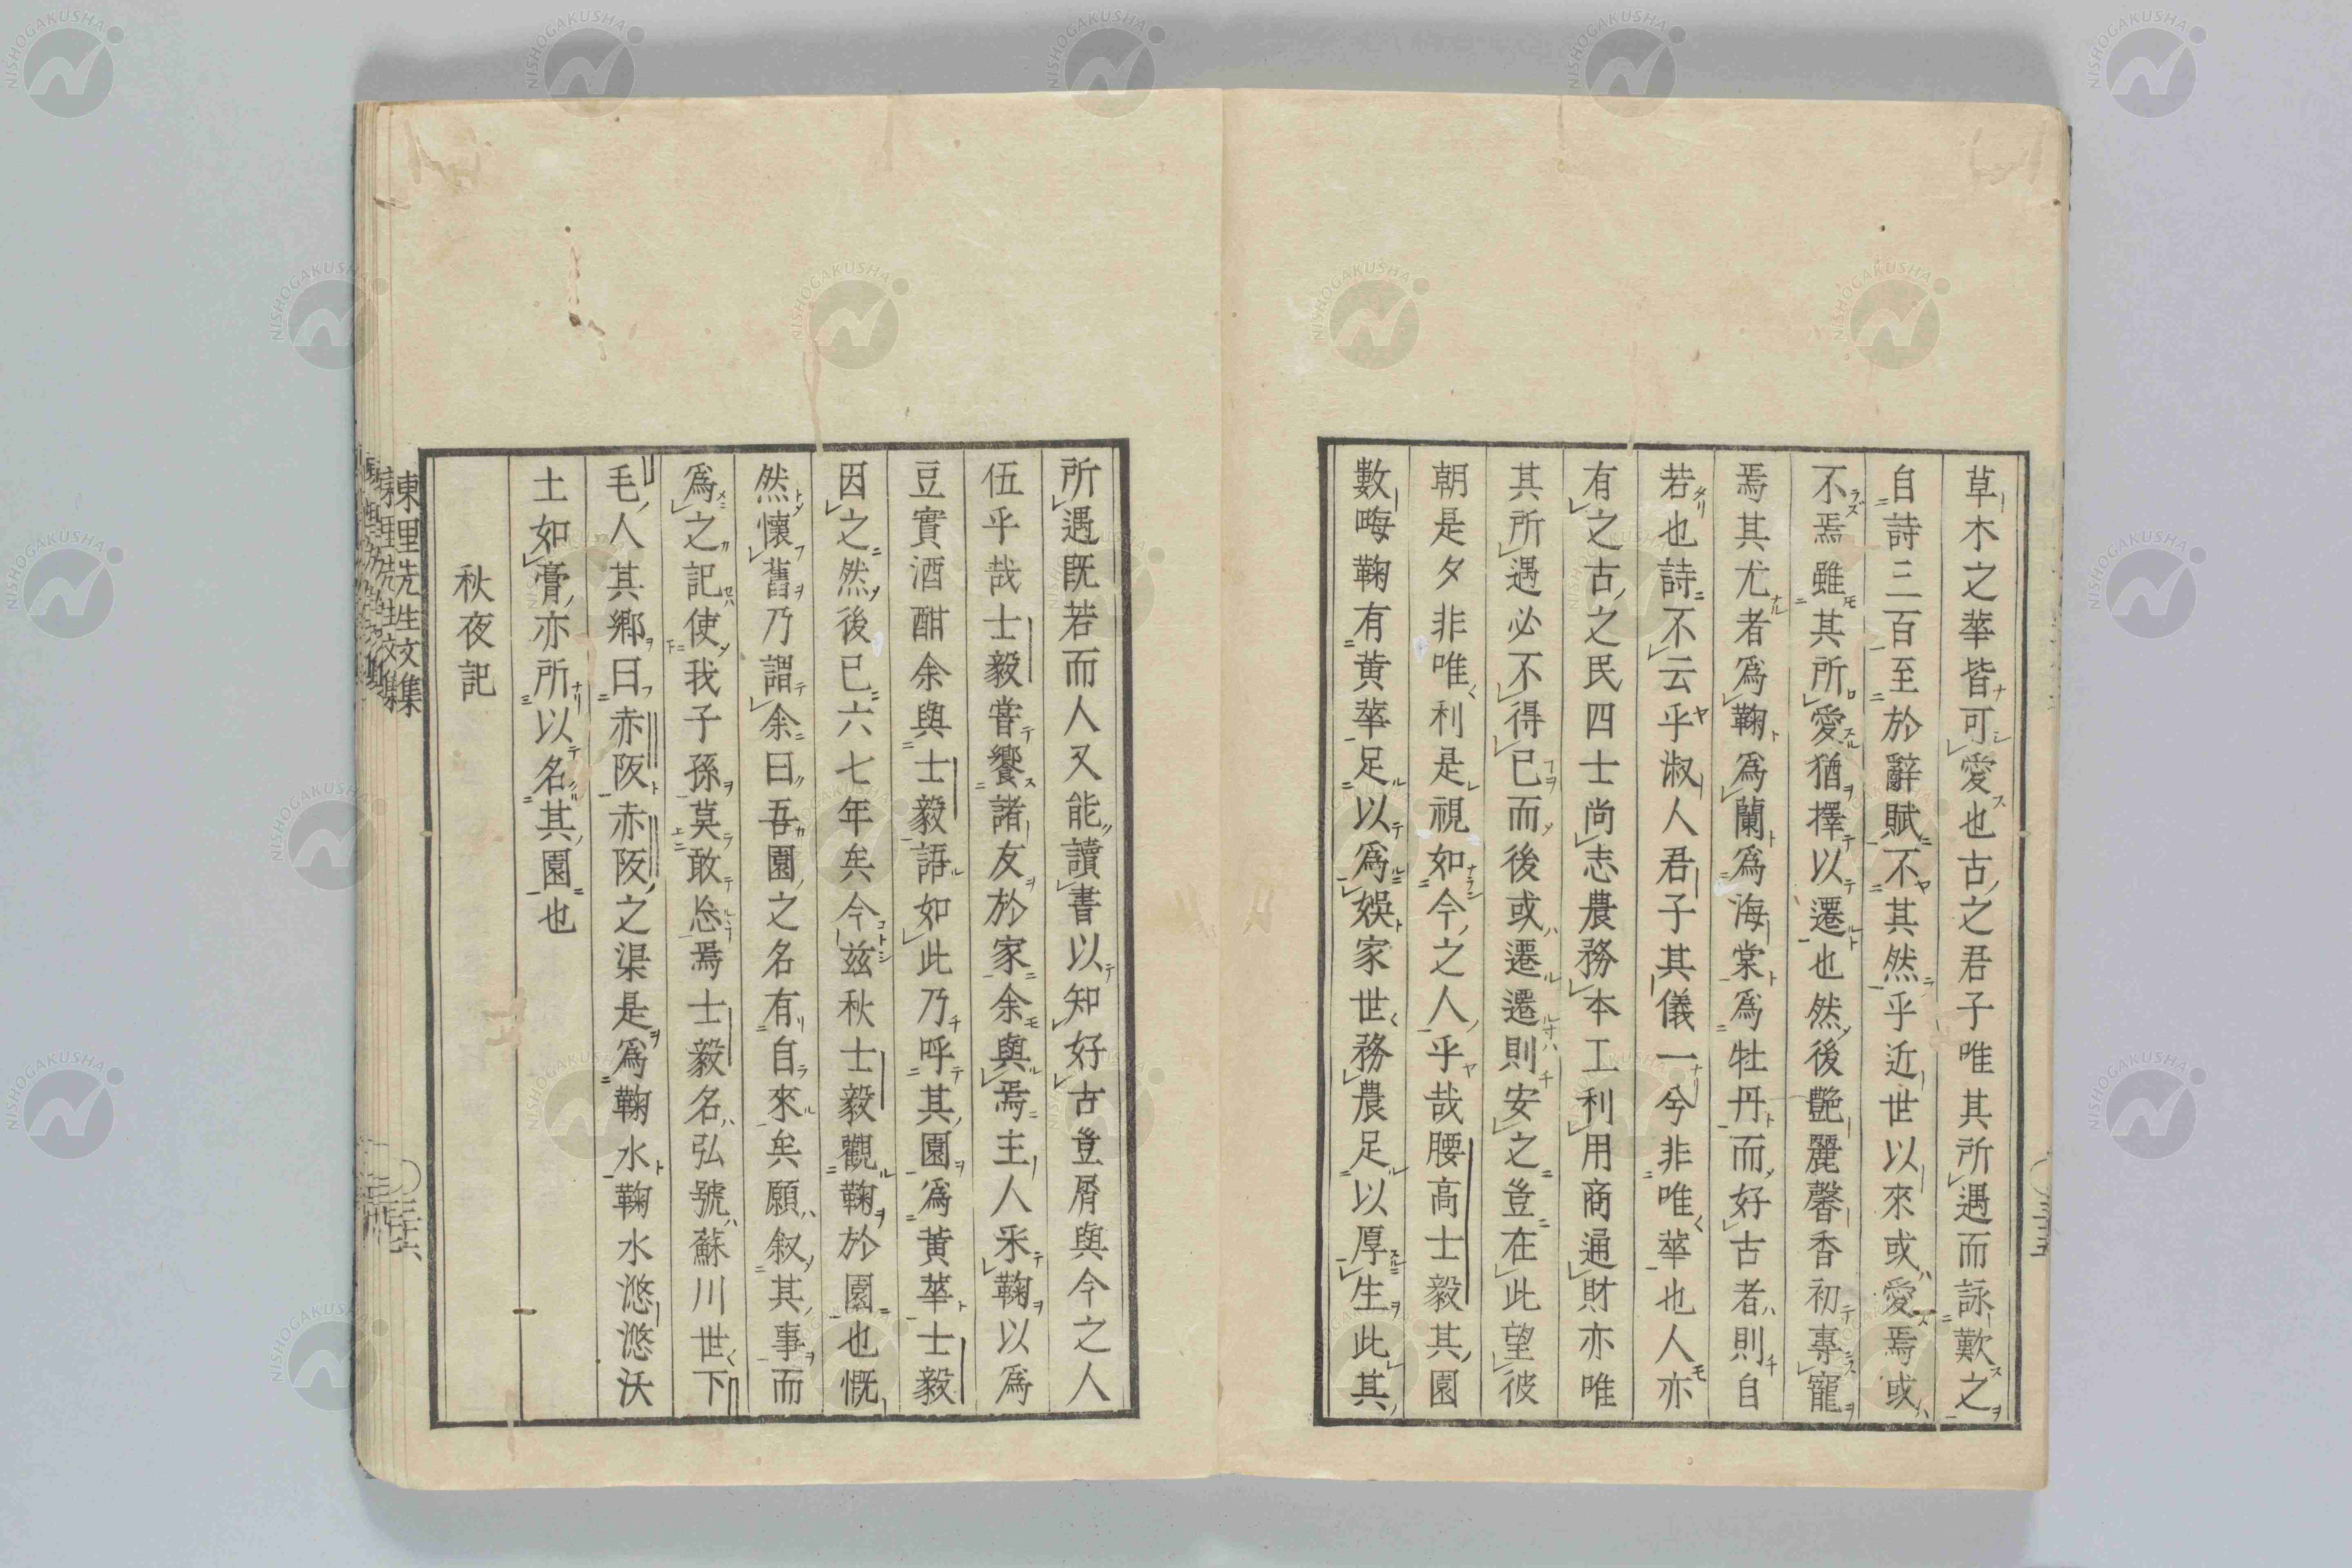 草木之華皆可愛也古之君子唯其所遇而詠歎之
自詩三百至於辭賦不其然乎近世以來或愛焉或
不焉雖其所愛猶擇以遷也然後艷麗馨香初專寵
焉其尤者爲鞠爲蘭爲海棠爲牡丹而好古者則自
若也詩不云乎淑人君子其儀一兮非唯華也人亦
有之古之民四士尚志農務本工利用商通財亦唯
其所遇必不得已而後或遷遷則安之豈在此望彼
朝是夕非唯利是視如今之人乎哉腰高士毅其園
數晦鞠有黃華足以爲娯家世務農足以厚生此其
所遇既若而人又能讀書以知好古豈屑與今之人
伍乎哉士毅嘗饗諸友於家余與焉主人采鞠以爲
豆實酒酣余與士毅語如此乃呼其園爲黃華士毅
因之然後已六七年矣今茲秋士毅觀鞠於園也慨
然懷舊乃謂余曰吾園之名有自來矣願叙其事而
爲之記使我子孫莫敢忽焉士毅名弘號蘇川世下
毛人其鄉曰赤阪赤阪之渠是爲鞠水鞠水滺滺沃
土如膏亦所以名其園也
秋夜記
東里先生文集
三十六